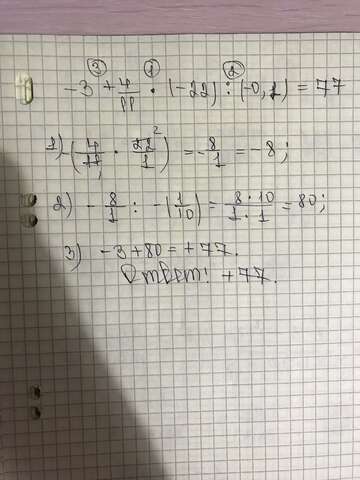 ③ ① ②
-3 + 4/11 · (-22) : (-0,1) = 77
1) -(4/11 · 22/1) = -8/1 = -8;
2) -8/1 : -(1/10) = 8·10/1·1 = 80;
3) -3+80 = +77.
Ответ: +77.